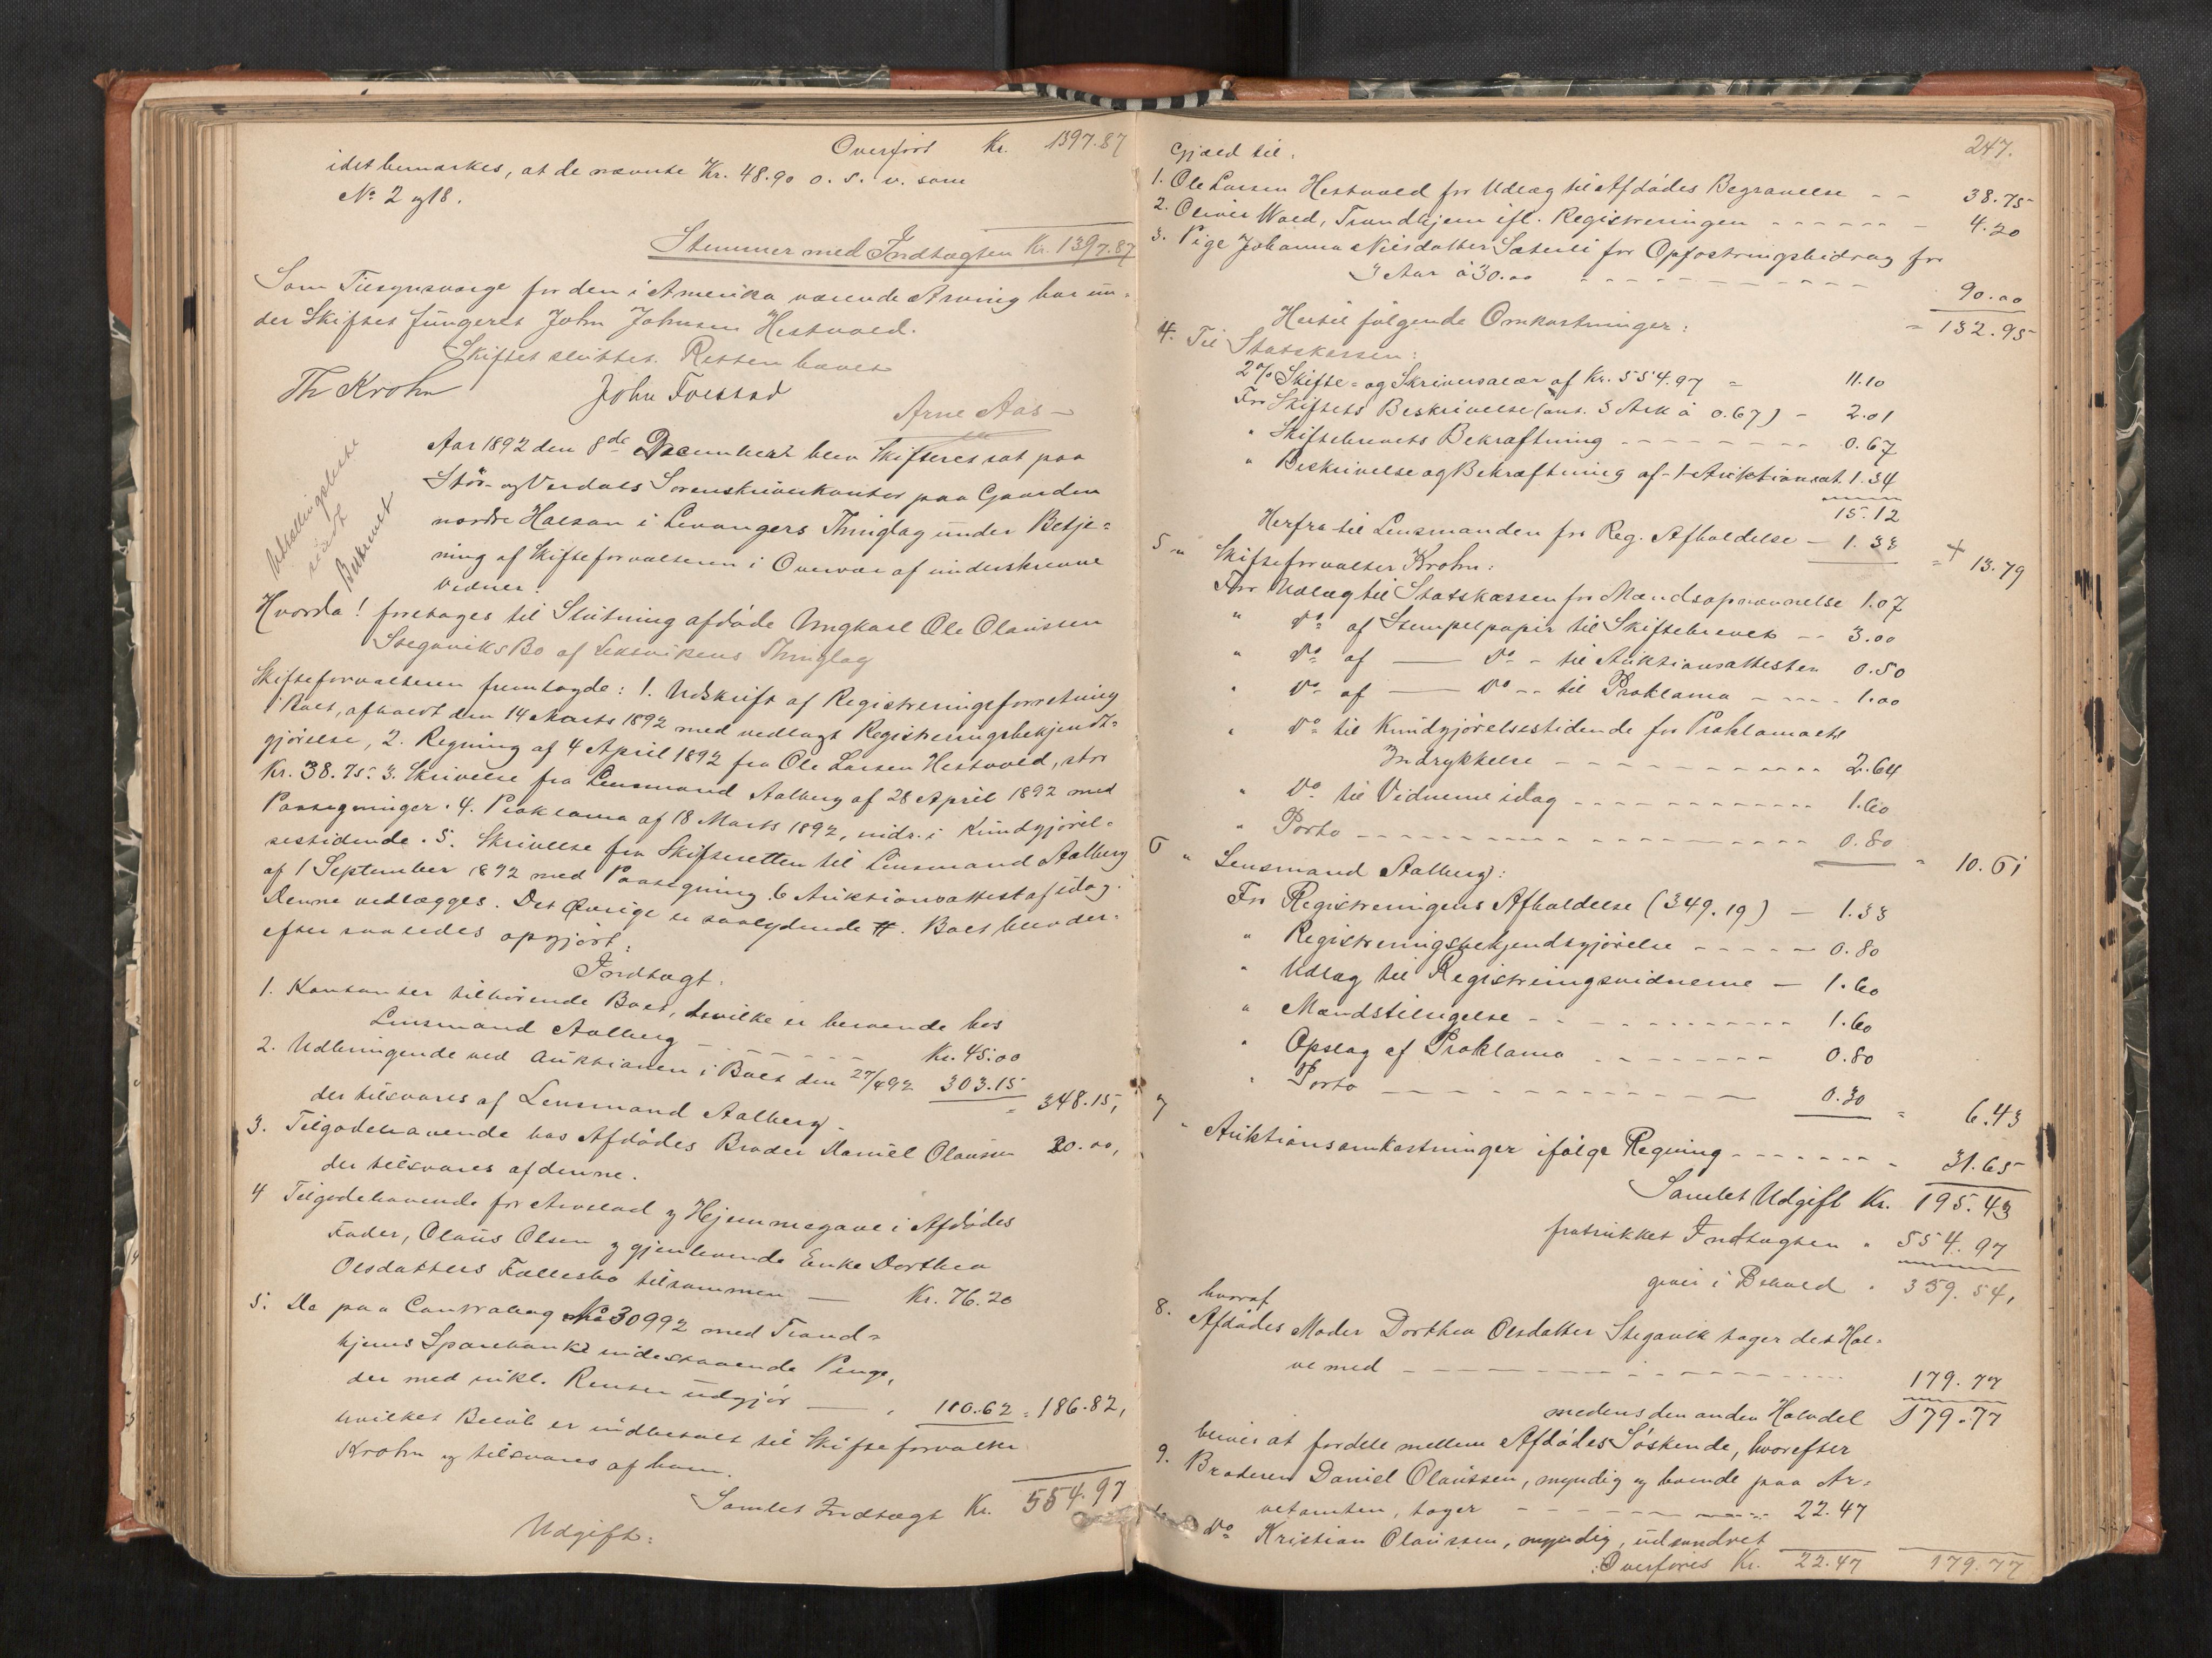 Overført Kr. 1397.87
idet bemærkes, at de nævnte Kr. 48.90 o. s. v. som
No 2 og 18.
Stemmer med Indtægten Kr. 1397.87
Som Tilsynsværge for den i Amerika værende Arving har un-
der Skiftet fungeret John Johnsen Hestvold.
Skiftet sluttet. Retten hævet
Th Krohn John Foestad Arne Aas
Beskrevet
Aar 1892 den 8de December blev Skifteret sat paa
Stør- og Verdals Sorenskriverkontor paa Gaarden
nordre Halsan i Levangers Thinglag under Betje-
ning af Skifteforvalteren i Overvær af underskrevne
Vidner.
Hvorda! foretoges til Slutning afdøde Ungkarl Ole Olaussen
Stegaviks Bo af Leksvikens Thinglag
Skifteforvalteren fremlagde: 1. Udskrift af Registreringsforretning
i Boet, afholdt den 14 Marts 1892 med vedlagt Registreringsbekjendt-
gjørelse, 2. Regning af 4 April 1892 fra Ole Larsen Hestvold, stor
Kr. 38.75. 3. Skrivelse fra Lensmand Aalberg af 28 April 1892 med
Paategninger. 4. Proklama af 18 Marts 1892, indr. i Kundgjørel-
sestidende. 5. Skrivelse fra Skifteretten til Lensmand Aalberg
af 1 September 1892 med Paategning. 6 Auktionsattest af idag.
Denne vedlægges. Det Øvrige er saalydende #. Boet blev der-
efter saaledes opgjort:
Indtægt.
1. Kontanter tilhørende Boet, hvilke er beroende hos
Lensmand Aalberg - - - - Kr. 45.00
2. Udbringende ved Auktionen i Boet den 27/4 92 303.15
= 348.15,
der tilsvares af Lensmand Aalberg.
3. Tilgodehavende hos Afdødes Broder Daniel Olausen 20.00,
der tilsvares af denne.
4 Tilgodehavende for Arvelod og Hjemmegave i Afdødes
Fader, Olaus Olsen og gjenlevende Enke Dorthea
Olsdatters Fællesbo tilsammen — Kr. 76.20
5. De paa Contrabog No 30992 med Trond-
hjems Sparebank indestaaende Penge,
der med inkl. Renter udgjør — " 110.62 = 186.82,
hvilket Beløb er indbetalt til Skifteforvalter
Krohn og tilsvares af ham.
Samlet Indtægt Kr. 554.97
Udgift:
247.
Gjæld til:
1. Ole Larsen Hestvold for Udlæg til Afdødes Begravelse - - 38.75
2. Oliver Wold, Trondhjem ifl. Registreringen - - - - - - 4.20
3. Pige Johanna Nilsdatter Sæterli for Opfostringsbidrag for
3 Aar à 30.00 - - - - - - - - 90.00
= 132.95
Hertil følgende Omkostninger:
4. Til Statskassen:
2% Skifte- og Skriversalær af Kr. 554.97 = 11.10
For Skiftets Beskrivelse (ant. 3 Ark à 0.67) - 2.01
" Skiftebrevets Bekræftning - - - - - - 0.67
" Beskrivelse og Bekræftning af 1 Auktionsat. 1.34
15.12
Herfra til Lensmanden for Reg. Afholdelse - 1.33
= + 13.79
5 " Skifteforvalter Krohn:
For Udlæg til Statskassen for Mændsopnævnelse 1.07
" Do af Stempelpapir til Skiftebrevet - - 3.00
" Do af — Do - til Auktionsattesten 0.50
" Do af — Do - - til Proklama - - - - 1.00
" Do til Kundgjørelsestidende for Proklamaets
Indrykkelse - - - - - - - - - - 2.64
" Do til Vidnerne idag - - - - - - - - 1.60
" Porto - - - - - - - - - - - - 0.80
" 10.61
6 " Lensmand Aalberg:
For Registreringens Afholdelse (349.19) — 1.33
" Registreringsbekjendtgjørelse - - - - - 0.80
" Udlæg til Registreringsvidnerne — 1.60
" Mændstilsigelse - - - - - - - - - 1.60
" Opslag af Proklama - - - - - - - 0.80
" Porto - - - - - - - - - - - 0.30
= 6.43
7 " Auktionsomkostninger ifølge Regning - - - - - - - 31.65
Samlet Udgift Kr. 195.43
fratrukket Indtægten " 554.97
giver i Behold " 359.54,
hvoraf
8. Afdødes Moder Dorthea Olsdatter Stegavik tager det Hal-
ve med - - - - - - - - - - - 179.77
medens den anden Halvdel 179.77
bliver at fordele mellem Afdødes Søskende, hvorefter
9. Broderen Daniel Olaussen, myndig og boende paa Ar-
vetomten, tager - - - - - - - - 22.47
Do Kristian Olaussen, myndig, udvandret
Overføres Kr. 22.47 179.77